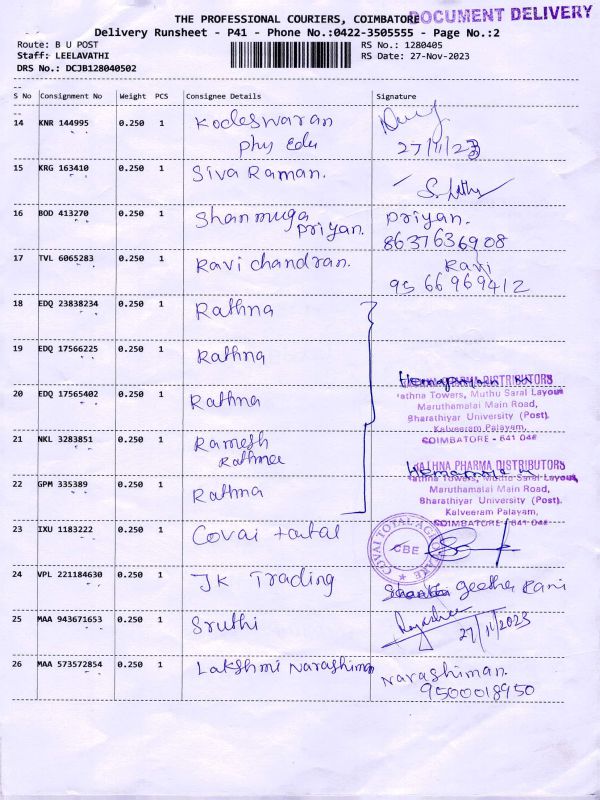 THE PROFESSIONAL COURIERS, COIMBATORE
DOCUMENT DELIVERY
Delivery Runsheet - P41 - Phone No.:0422-3505555 - Page No.:2
Route: B U POST
RS No.: 1280405
Staff: LEELAVATHI
RS Date: 27-Nov-2023
DRS No.: DCJB128040502
S No Consignment No Weight PCS Consignee Details Signature
14 KNR 144995 0.250 1 Kodeswaran
Phy Edu
27/11/23
15 KRG 163410 0.250 1 Siva Raman.
16 BOD 413270 0.250 1 Shanmuga
Priyan.
Priyan.
8637636908
17 TVL 6065283 0.250 1 Ravi chandran.
Ravi
9566969412
18 EDQ 23838234 0.250 1 Rathna
19 EDQ 17566225 0.250 1 Rathna
20 EDQ 17565402 0.250 1 Rathna
RATHNA PHARMA DISTRIBUTORS
Rathna Towers, Muthu Saral Layout
Maruthamalai Main Road,
Bharathiyar University (Post),
Kalveeram Palayam,
COIMBATORE - 641 046
21 NKL 3283851 0.250 1 Ramesh
Rathna
22 GPM 335389 0.250 1 Rathna
RATHNA PHARMA DISTRIBUTORS
Rathna Towers, Muthu Saral Layout
Maruthamalai Main Road,
Bharathiyar University (Post),
Kalveeram Palayam,
COIMBATORE - 641 046
23 IXU 1183222 0.250 1 Covai total
COVAI TOTAL
CBE
24 VPL 221184630 0.250 1 JK Trading
geetha Rani
25 MAA 943671653 0.250 1 Sruthi
27/11/2023
26 MAA 573572854 0.250 1 Lakshmi Narashiman
Narashiman.
9500018950